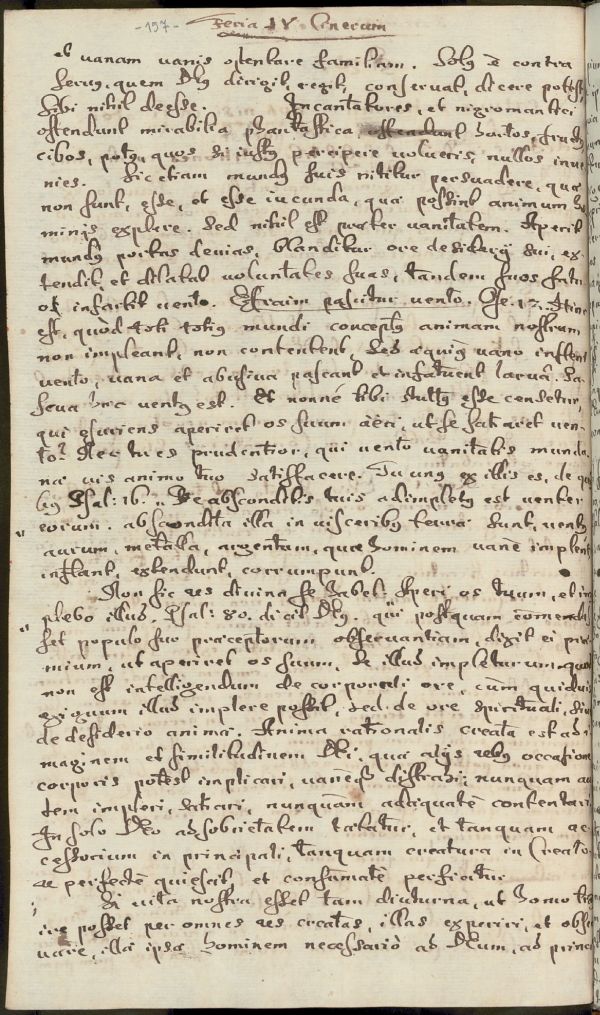 - 157 - Feria IV Cinerum
et vanam vanis ostentare familiam. Solꝰ è contra
servꝰ, quem Dꝰ dirigit, regit, conservat, dicere potest,
Sibi nihil deesse. Incantatores, et nigromantici
ostendunt mirabilia phantastica hortos, fructꝰ
cibos, potꝰ, quos si iustꝰ percipere volueris, nullos inve
nies. Sic etiam mundꝰ suis nititur persvadere, quæ
non sunt, esse, et esse iucunda, quæ possint animum ho
minis explere. Sed nihil est præter vanitatem. Aperit
mundꝰ portas devias, blanditur ore desiderij sui, ex
tendit, et dilatat voluntates suas, tandem suos
os infartit vento. Effraim pascitur vento. Ose. 12. Hinc
est, quòd toti totiꝰ mundi conceptꝰ animam nostram
non impleant, non contentent, Sed vano inflent
vento, vana et abusiva pascant et larva. Pa-
scua hæc ventꝰ est. Et nonnè tibi stultꝰ esse censetur,
qui esuriens aperiret os suum aëri, ut se satiaret ven-
to? Nec tu es prudentior, qui vento vanitatis munda
næ vis animo tuo satisfacere. Tu unꝰ ex illis es, de qui
bꝰ Psal: 16. De absconditis tuis adimpletꝰ est venter
eorum. abscondita illa in visceribꝰ terræ sunt, ventꝰ
aurum, metalla, argentum, quæ hominem vanè implent
inflant, extendunt, corrumpunt.
Non sic res divina se habet: Aperi os tuum, et im
plebo illud. Psal: 80. dicit Dꝰ. qui postquam com̄endas
set populo suo præceptorum observantiam, dixit ei præ
mium, ut aperiret os suum, se illud impleturum quod
non est intelligendum de corporali ore, cùm quidvis
exiguum illud implere posset, sed de ore spirituali, sive
de desiderio animæ. Anima rationalis creata est ad i
maginem et similitudinem Dei, quæ alijs rebꝰ occasione
corporis potest implicari, varieq; distrahi; nunquam au
tem impleri, satiari, nunquam adæquatè contentari.
In solo Deo ad sobrietatem satiatur, et tanquam ac
cessorium in principali, tanquam creatura in Creatore
perfectè quiescit, et consumatè perficitur.
Si vita nostra esset tam diuturna, ut homo trans
ire posset per omnes res creatas, illas experiri, et obser
vare, illæ ipsæ hominem necessariò ad Deum, ad princi